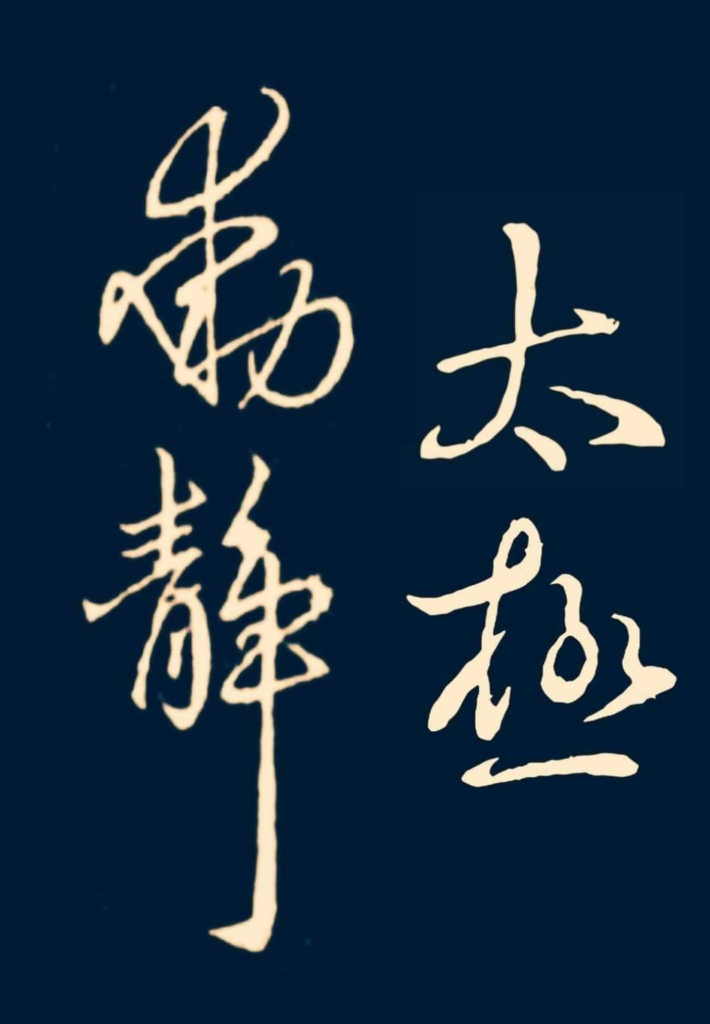 太極
動靜